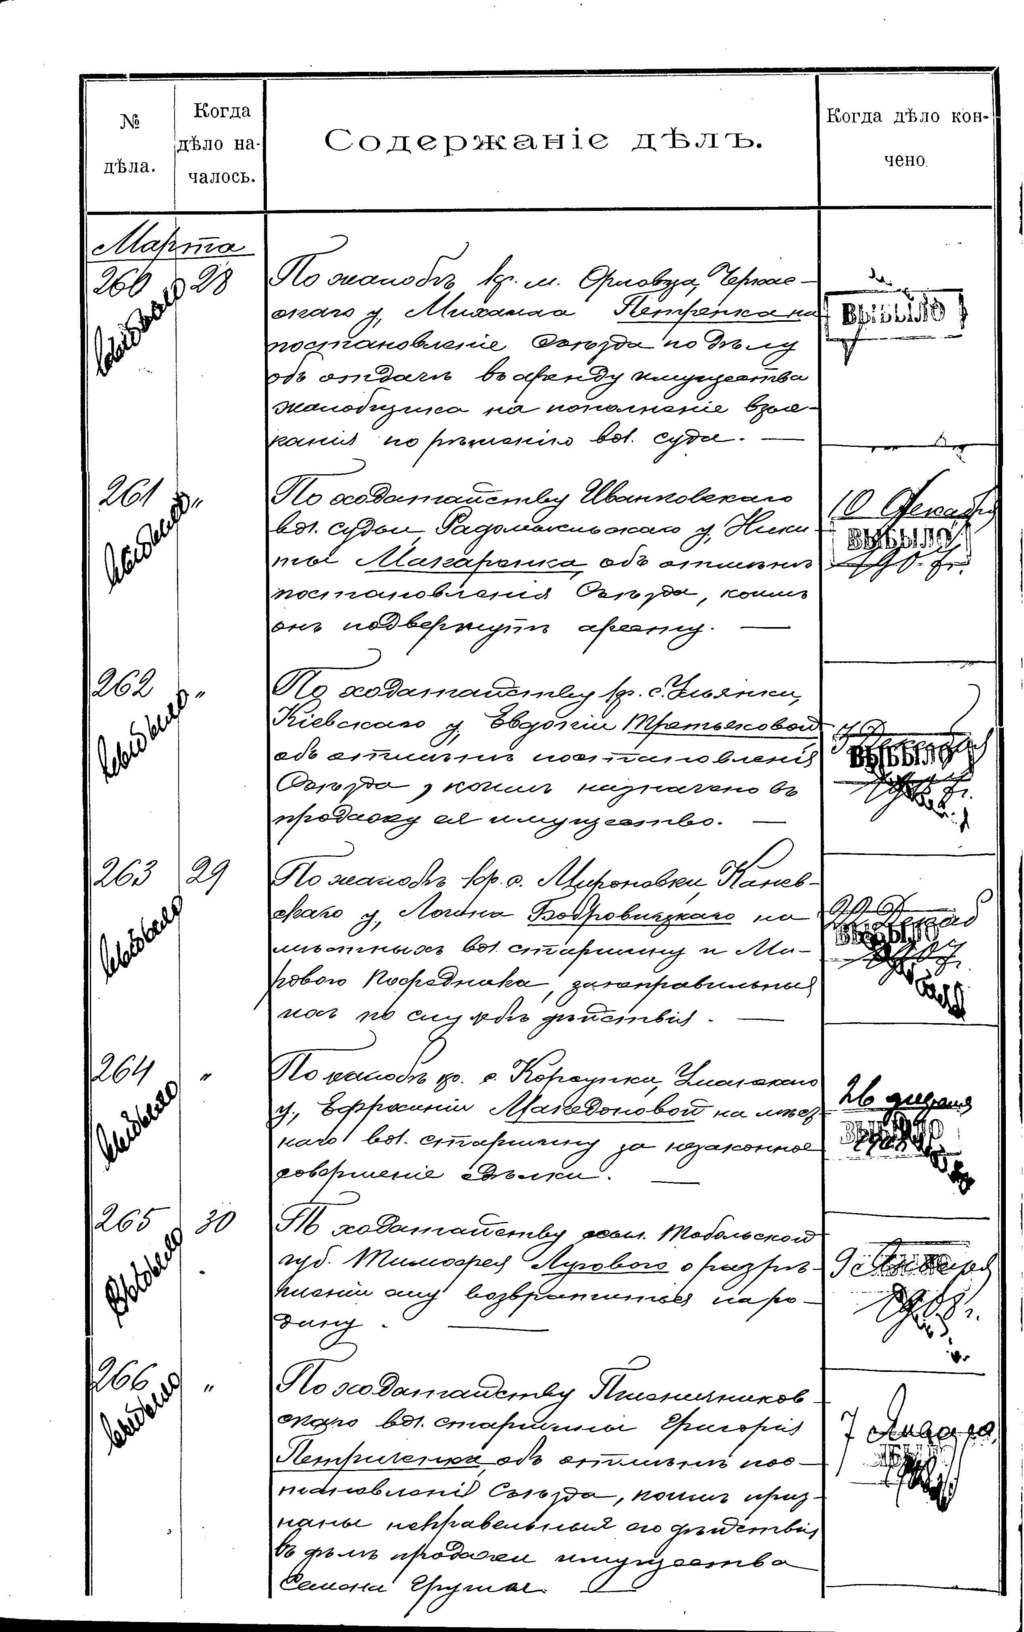 № дѣла.
Когда дѣло началось.
Содержаніе дѣлъ.
Когда дѣло кончено.
Марта
260
28
выбыло
По жалобѣ кр. м. Орловца, Черкас-
скаго у, Михаила Петренка на
постановленіе Съѣзда по дѣлу
объ отдачѣ въ аренду имущества
жалобщика на пополненіе взыс-
канія по рѣшенію вол. суда. —
ВЫБЫЛО
261
"
выбыло
По ходатайству Иванковскаго
вол. судьи, Радомысльскаго у, Ники-
ты Макаренка, объ отмѣнѣ
постановленія Съѣзда, коимъ
онъ подвергнутъ аресту. —
10 Декабря
ВЫБЫЛО
190 г.
262
"
выбыло
По ходатайству кр. с. Ульянки,
Кіевскаго у, Евдокіи Третьяковой
объ отмѣнѣ постановленія
Съѣзда, коимъ назначено въ
продажу ея имущество. —
Декабря
ВЫБЫЛО
263
29
выбыло
По жалобѣ кр. с. Мироновки, Канев-
скаго у, Логина Бобровицкаго на
мѣстныхъ вол. старшину и Ми-
рового Посредника, за неправильныя
по службѣ дѣйствія. —
20 Декаб
ВЫБЫЛО
1907 г.
264
"
выбыло
По жалобѣ кр. с. Корсунки, Уманскаго
у, Ефросиніи Македоновой на мѣст-
наго вол. старшину за незаконное
совершеніе сдѣлки. —
26
ВЫБЫЛО
265
30
Выбыло
По ходатайству Тобольской
губ. Тимофея Лугового о разрѣ-
шеніи ему возвратиться на ро-
дину. —
9 Января
1908 г.
266
"
выбыло
По ходатайству Пшеничников-
скаго вол. старшины Григорія
Петриченка, объ отмѣнѣ пос-
тановленія Съѣзда, коимъ приз-
наны неправильныя его дѣйствія
въ дѣлѣ продажи имущества
Семена Груши. —
7 Января
1908